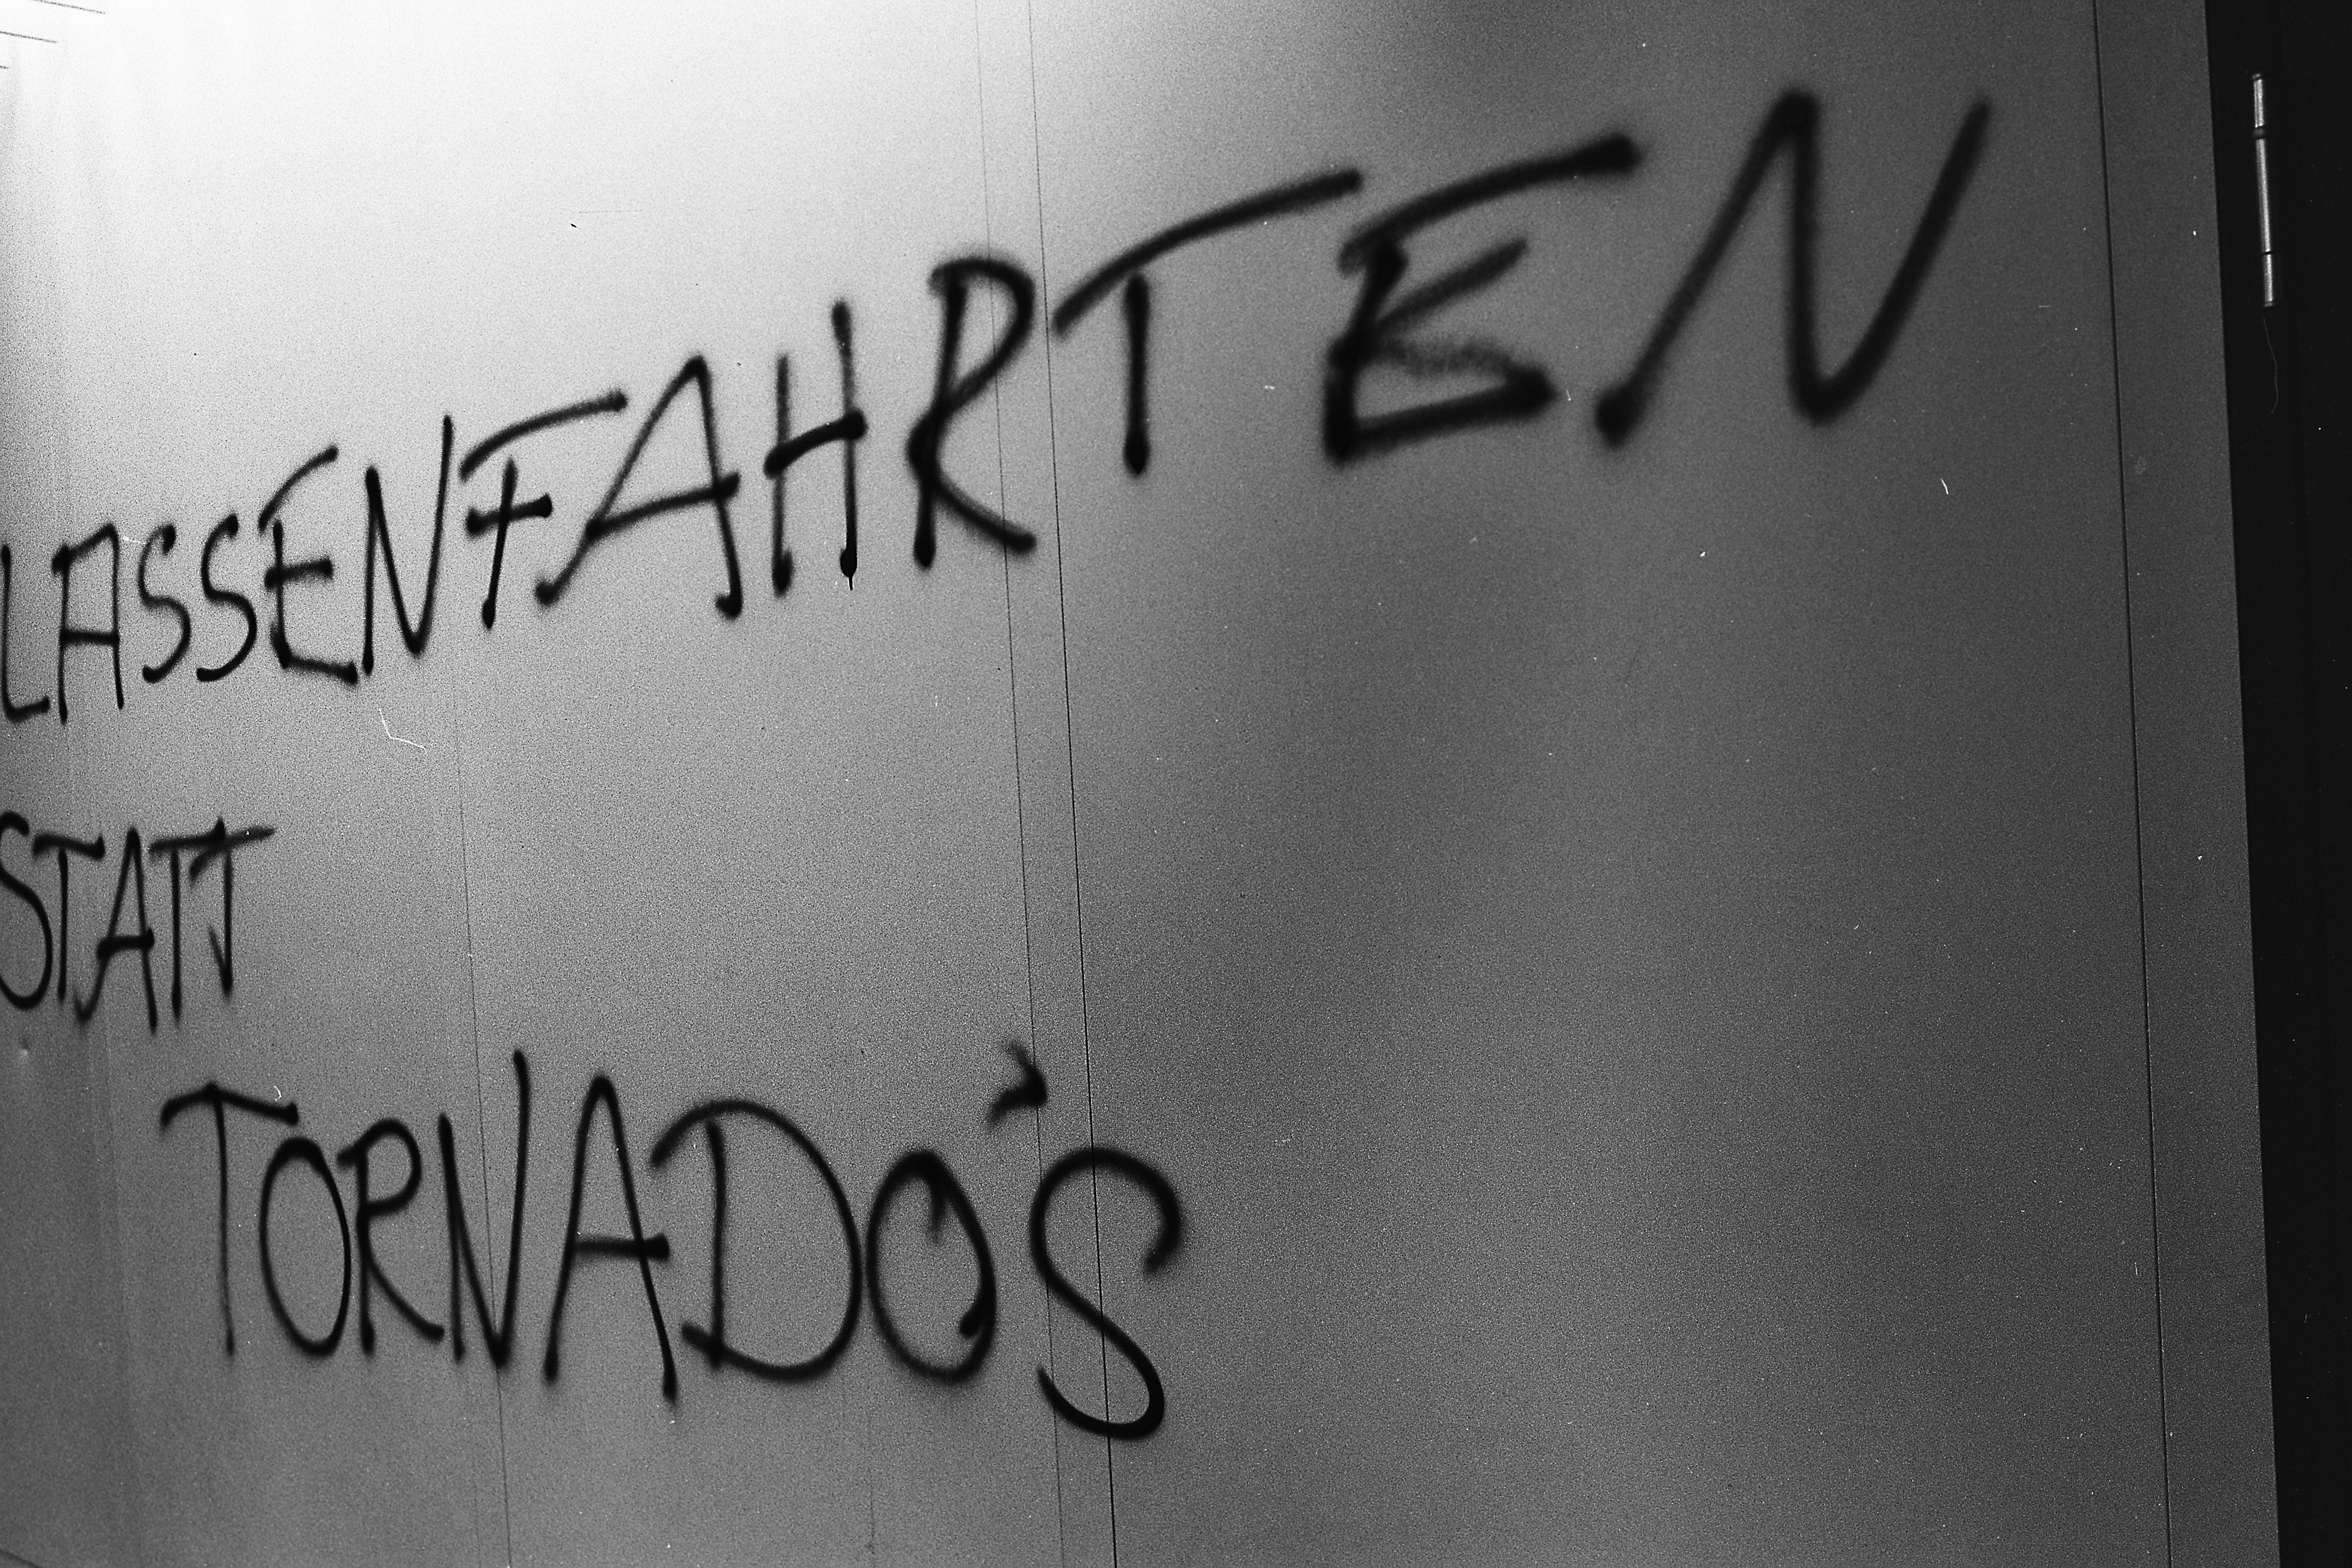 LASSENFAHRTEN
STATT
TORNADO'S